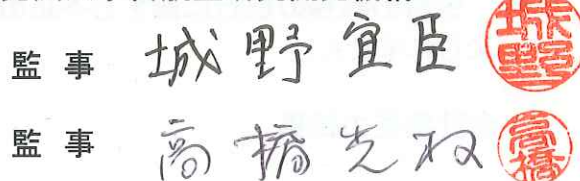 監事 城野宜臣 城野
監事 高橋 高橋